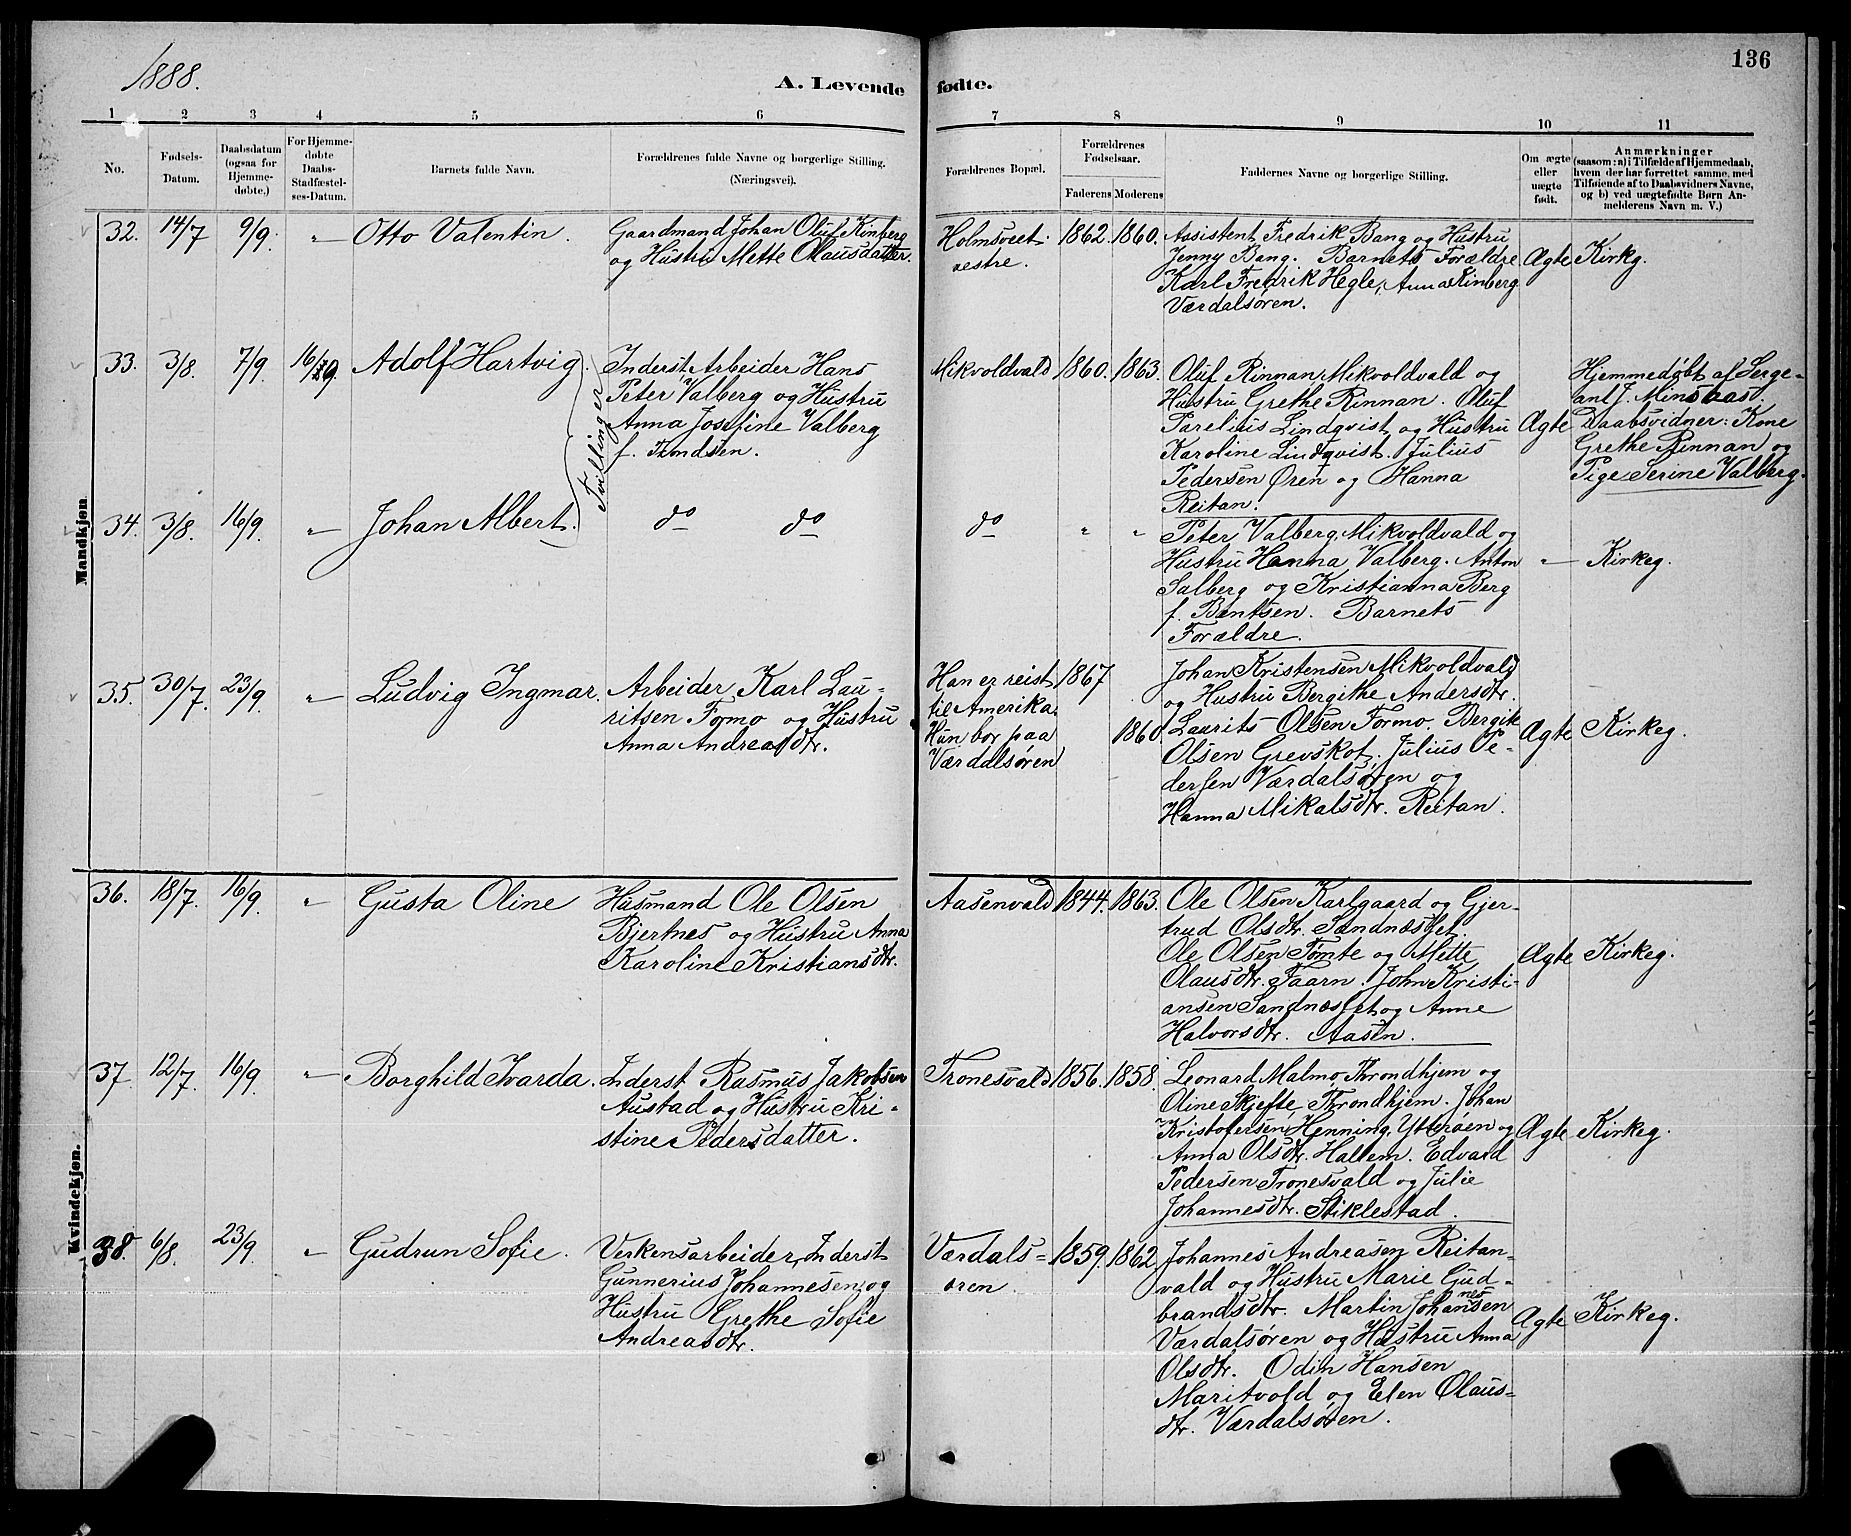 1888.
136
A. Levende fødte.
1 2 3 4 5 6 7 8 9 10 11
No.
Fødsels-
Datum.
Daabsdatum
(ogsaa for
Hjemme-
døbte.)
For Hjemme-
døbte
Daabs-
Stadfæstel-
ses-Datum.
Barnets fulde Navn.
Forældrenes fulde Navne og borgerlige Stilling.
(Næringsvei).
Forældrenes Bopæl.
Forældrenes
Fødselsaar.
Faderens Moderens
Faddernes Navne og borgerlige Stilling.
Om ægte
eller
uægte
født.
Anmærkninger
(saasom: a) i Tilfælde af Hjemmedaab,
hvem der har forrettet samme, med
Tilføiende af to Daabsvidners Navne,
og b) ved uægtefødte Børn An-
melderens Navn m. V.)
Mandkjøn
32. 14/7 9/9. " Otto Valentin.
Gaardmand Johan Oluf Kinberg
og Hustru Mette Olausdatter.
Holmsveet
vestre.
1862. 1860.
Assistent Fredrik Bang og Hustru
Jenny Bang. Barnets Forældre
Karl Fredrik Hegle, Anna Kinberg
Værdalsøren.
Ægte Kirkg.
33. 3/8. 7/9. 16/9. Adolf Hartvig.
Tvillinger
Inderst, Arbeider Hans
Peter Valberg og Hustru
Anna Josefine Valberg
f. Tundsen.
Mikvoldvald 1860. 1863.
Oluf Rinnan, Mikvoldvald og
Hustru Grethe Rinnan. Oluf
Parelius Lindqvist og Hustru
Karoline Lindqvist. Julius
Pedersen Øren og Hanna
Reitan.
Ægte
Hjemmedøbt af Serge-
ant J. Minsaas.
Daabsvidner: Kone
Grethe Rinnan og
Pige Serine Valberg.
34. 3/8. 16/9. " Johan Albert.
do do do " "
Peter Valberg, Mikvoldvald og
Hustru Hanna Valberg. Anton
Salberg og Kristianna Berg
f. Bentsen. Barnets
Forældre.
" Kirkeg.
35. 30/7. 23/9. " Ludvig Ingmar.
Arbeider Karl Lau-
ritsen Formo og Hustru
Anna Andreasdtr.
Han er reist
til Amerika.
Hun bor paa
Værdalsøren
1867
1860.
Johan Kristensen Mikvoldvald
og Hustru Bergithe Andersdtr.
Laurits Olsen Formo. Bergit
Olsen Grevskot. Julius Pe-
dersen Værdalsøren og
Hanna Mikalsdtr. Reitan.
Ægte Kirkeg.
Kvindekjøn.
36. 18/7. 16/9. " Gusta Oline
Husmand Ole Olsen
Bjertnes og Hustru Anna
Karoline Kristiansdtr.
Aasenvald 1844. 1863.
Ole Olsen Karlgaard og Gjer-
trud Olsdtr. Sandnæslet.
Ole Olsen Tømte og Mette
Olausdtr. Faarn. John Kristi-
ansen Sandnæslet og Anne
Halvorsdtr. Aasen.
Ægte Kirkeg.
37 12/7. 16/9 " Borghild Ivarda.
Inderst Rasmus Jakobsen
Austad og Hustru Kri-
stine Pedersdatter.
Tronesvald 1856. 1858.
Leonard Malmo, Throndhjem og
Oline Skjefte, Throndhjem. Johan
Kristofersen Henning, Ytterøen og
Anna Olsdtr. Hallem. Edvard
Pedersen Tronesvald og Julie
Johannesdtr. Stiklestad.
Ægte Kirkeg.
38. 6/8. 23/9. " Gudrun Sofie.
Verkensarbeider, Inderst
Gunnerius Johannesen og
Hustru Grethe Sofie
Andreasdtr.
Værdals-
øren.
1859. 1862
Johannes Andreasen Reitan-
vald og Hustru Marie Gud-
brandsdtr. Martin Johannesen
Værdalsøren og Hustru Anna
Olsdtr. Odin Hansen
Maritvold og Elen Olaus-
dtr. Værdalsøren.
Ægte Kirkeg.